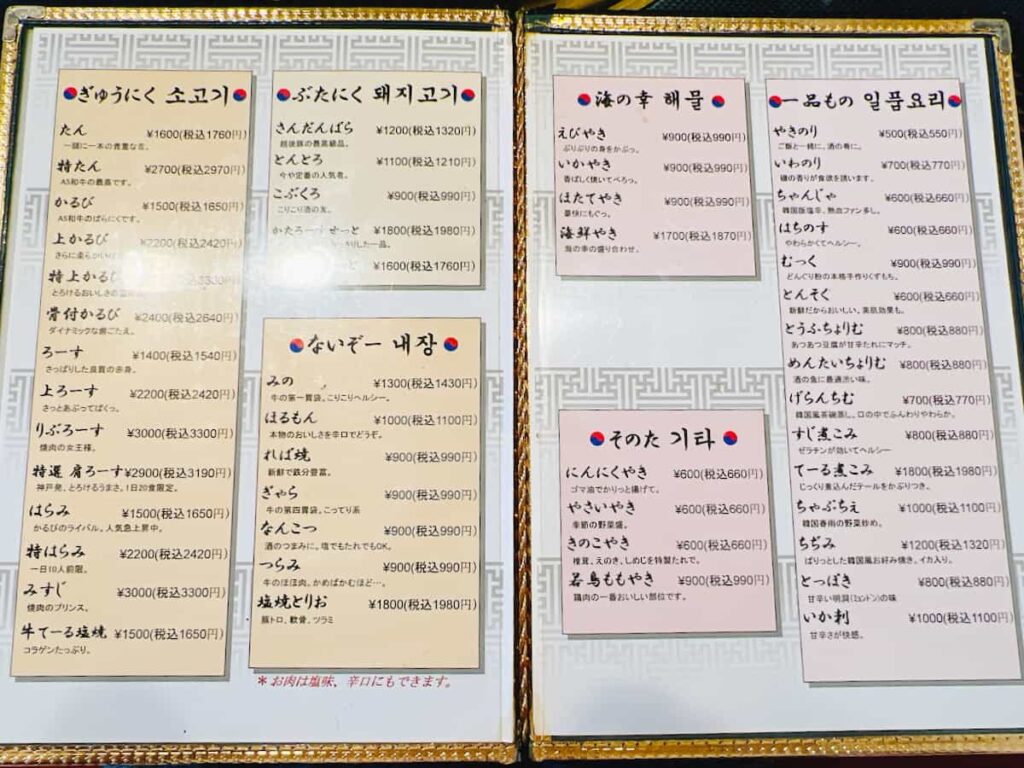 ぎゅうにく 소고기
たん ¥1600(税込1760円)
一頭に一本の貴重な舌。
特たん ¥2700(税込2970円)
A5和牛の最高です。
かるび ¥1500(税込1650円)
A5和牛のばらにくです。
上かるび ¥2200(税込2420円)
さらに柔らかい
特上かるび 3300円)
とろけるおいしさの
骨付かるび ¥2400(税込2640円)
ダイナミックな歯ごたえ。
ろーす ¥1400(税込1540円)
さっぱりした良質の赤身。
上ろーす ¥2200(税込2420円)
さっとあぶってぱくっ。
りぶろーす ¥3000(税込3300円)
焼肉の女王様。
特選 肩ろーす ¥2900(税込3190円)
神戸発、とろけるうまさ。1日20食限定。
はらみ ¥1500(税込1650円)
かるびのライバル。人気急上昇中。
特はらみ ¥2200(税込2420円)
一日10人前限。
みすじ ¥3000(税込3300円)
焼肉のプリンス。
牛てーる塩焼 ¥1500(税込1650円)
コラゲンたっぷり。
ぶたにく 돼지고기
さんだんばら ¥1200(税込1320円)
越後豚の最高級品。
とんとろ ¥1100(税込1210円)
今や定番の人気者。
こぶくろ ¥900(税込990円)
こりこり酒の友。
かたろーすせっと ¥1800(税込1980円)
した一品。
¥1600(税込1760円)
ないぞー 내장
みの ¥1300(税込1430円)
牛の第一胃袋。こりこりヘルシー。
ほるもん ¥1000(税込1100円)
本物のおいしさを辛口でどうぞ。
ればー焼 ¥900(税込990円)
新鮮で鉄分豊富。
ぎゃら ¥900(税込990円)
牛の第四胃袋。こってり系
なんこつ ¥900(税込990円)
酒のつまみに。塩でもたれでもOK。
つらみ ¥900(税込990円)
牛のほほ肉。かめばかむほど…。
塩焼とりお ¥1800(税込1980円)
豚トロ、軟骨、ツラミ
＊お肉は塩味、辛口にもできます。
海の幸 해물
えびやき ¥900(税込990円)
ぷりぷりの身をかぶっ。
いかやき ¥900(税込990円)
香ばしく焼いてぺろっ。
ほたてやき ¥900(税込990円)
豪快にもぐっ。
海鮮やき ¥1700(税込1870円)
海の幸の盛り合わせ。
そのた 기타
にんにくやき ¥600(税込660円)
ゴマ油でかりっと揚げて。
やさいやき ¥600(税込660円)
季節の野菜盛。
きのこやき ¥600(税込660円)
椎茸、えのき、しめじを特製たれで。
若鳥ももやき ¥900(税込990円)
鶏肉の一番おいしい部位です。
一品もの 일품요리
やきのり ¥500(税込550円)
ご飯と一緒に。酒の肴に。
いわのり ¥700(税込770円)
磯の香りが食欲を誘います。
ちゃんじゃ ¥600(税込660円)
韓国版塩辛。熱血ファン多し。
はちのす ¥600(税込660円)
やわらかくてヘルシー。
むっく ¥900(税込990円)
どんぐり粉の本格手作りくずもち。
とんそく ¥600(税込660円)
新鮮だからおいしい。美肌効果も。
とうふちょりむ ¥800(税込880円)
あつあつ豆腐が甘辛たれにマッチ。
めんたいちょりむ ¥800(税込880円)
酒の魚に最適渋い味。
げらんちむ ¥700(税込770円)
韓国風茶碗蒸し。口の中でふんわりやわらか。
すじ煮こみ ¥800(税込880円)
ゼラチンが効いてヘルシー
てーる煮こみ ¥1800(税込1980円)
じっくり煮込んだテールをかぶりつき。
ちゃぷちぇ ¥1000(税込1100円)
韓国春雨の野菜炒め。
ちぢみ ¥1200(税込1320円)
ぱりっとした韓国風お好み焼き。イカ入り。
とっぽき ¥800(税込880円)
甘辛い明洞(ミョンドン)の味
いか刺 ¥1000(税込1100円)
甘辛さが快感。